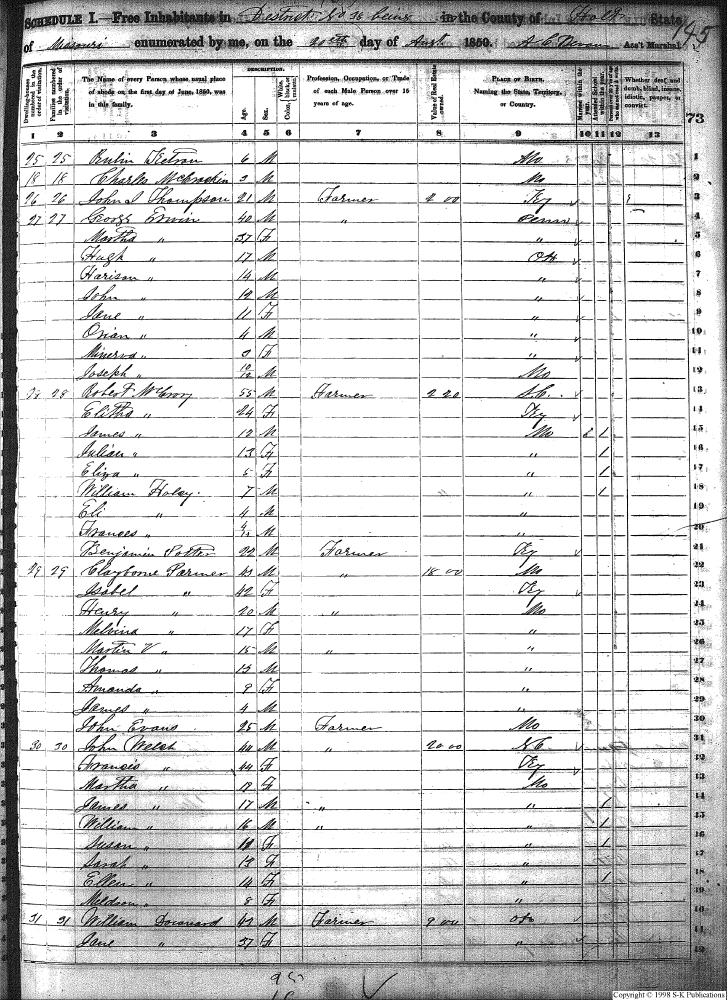 SCHEDULE I.—Free Inhabitants in District No 16 being in the County of Holt State
of Missouri enumerated by me, on the 20th day of Augt 1850. Ass't Marshal
145
73
Dwelling-houses numbered in the order of visitation.
Families numbered in the order of visitation.
The Name of every Person whose usual place of abode on the first day of June, 1850, was in this family.
DESCRIPTION.
Age.
Sex.
White, Color, black, or mulatto.
Profession, Occupation, or Trade of each Male Person over 15 years of age.
Value of Real Estate owned.
PLACE OF BIRTH. Naming the State, Territory, or Country.
Married within the year.
Attended School within the year.
Whether deaf and dumb, blind, insane, idiotic, pauper, or convict.
1 2 3 4 5 6 7 8 9 10 11 12 13
25 25 6 M Mo
18 18 Charles McCrackin 3 M Mo
26 26 John S Thompson 21 M Farmer 200 Ky
27 27 George Erwin 40 M " Penn
Martha " 37 F "
Hugh " 17 M OH
Harison " 14 M "
John " 12 M "
Jane " 11 F "
Orian " 4 M "
Minerva " F "
Joseph " 10/12 M Mo
28 28 Robert McCroy 55 M Farmer 220 S.C.
Elitha " 24 F Ky
James " 12 M Mo 1
Julian " 13 F " 1
Eliza " 5 F " 1
William Holey 7 M " 1
Eli " 4 M "
Frances " M "
Benjamin Potter 22 M Farmer Ky
29 29 Clayborne Parmer 43 M " 1800 Mo
Isabel " 42 F Ky
Henry " 20 M " Mo
Melvina " 17 F "
Martin V " 15 M " "
Thomas " 13 M "
Amanda " 8 F "
James " 4 M "
John Evans 25 M Farmer Mo
30 30 John Welsh 44 M " 2000 N.C.
Francis " 44 F Ky
Martha " 18 F Mo
James " 17 M " " 1
William " 16 M " " 1
Susan " F " 1
Sarah " 13 F " 1
Ellen " 14 F " 1
8 F "
31 31 William 42 M Farmer 900
Jane " 37 F "
Copyright © 1998 S-K Publications